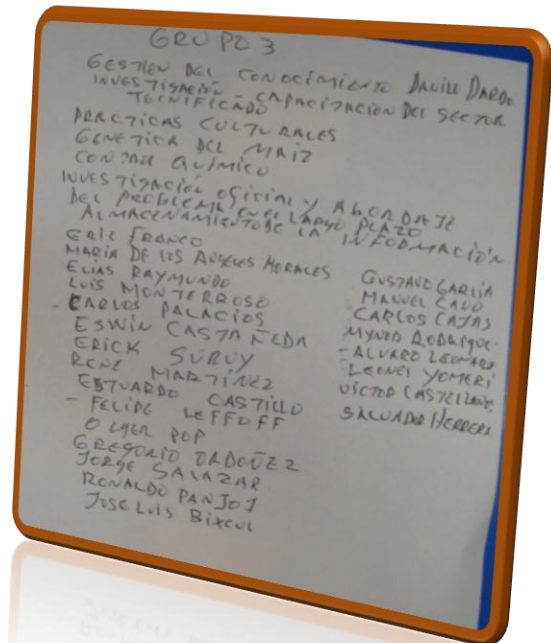 GRUPO 3
GESTION DEL CONOCIMIENTO DANILO DARDO
INVESTIGACIÓN - CAPACITACION DEL SECTOR
TECNIFICADO
PRACTICAS CULTURALES
GENETICA DEL MAIZ
CONTROL QUIMICO
INVESTIGACIÓN OFICIAL Y ABORDAJE
DEL PROBLEMA EN EL LARGO PLAZO
ALMACENAMIENTO DE LA INFORMACIÓN
ERIC FRANCO
MARIA DE LOS ANGELES MORALES
ELIAS RAYMUNDO
LUIS MONTERROSO
- CARLOS PALACIOS
ESWIN CASTAÑEDA
ERICK SURUY
RENE MARTINEZ
ESTUARDO CASTILLO
- FELIPE LEFFOFF
OLGER POP
GREGORIO ORDOÑEZ
JORGE SALAZAR
RONALDO PANJOJ
JOSE LUIS BIXCUL
GUSTAVO GARCIA
MANUEL CANO
CARLOS CAJAS
MYNOR RODRIGUE
- ALVARO LEONARDO
LEONEL YOMERI
VICTOR CASTELLANOS
SALVADOR HERRERA